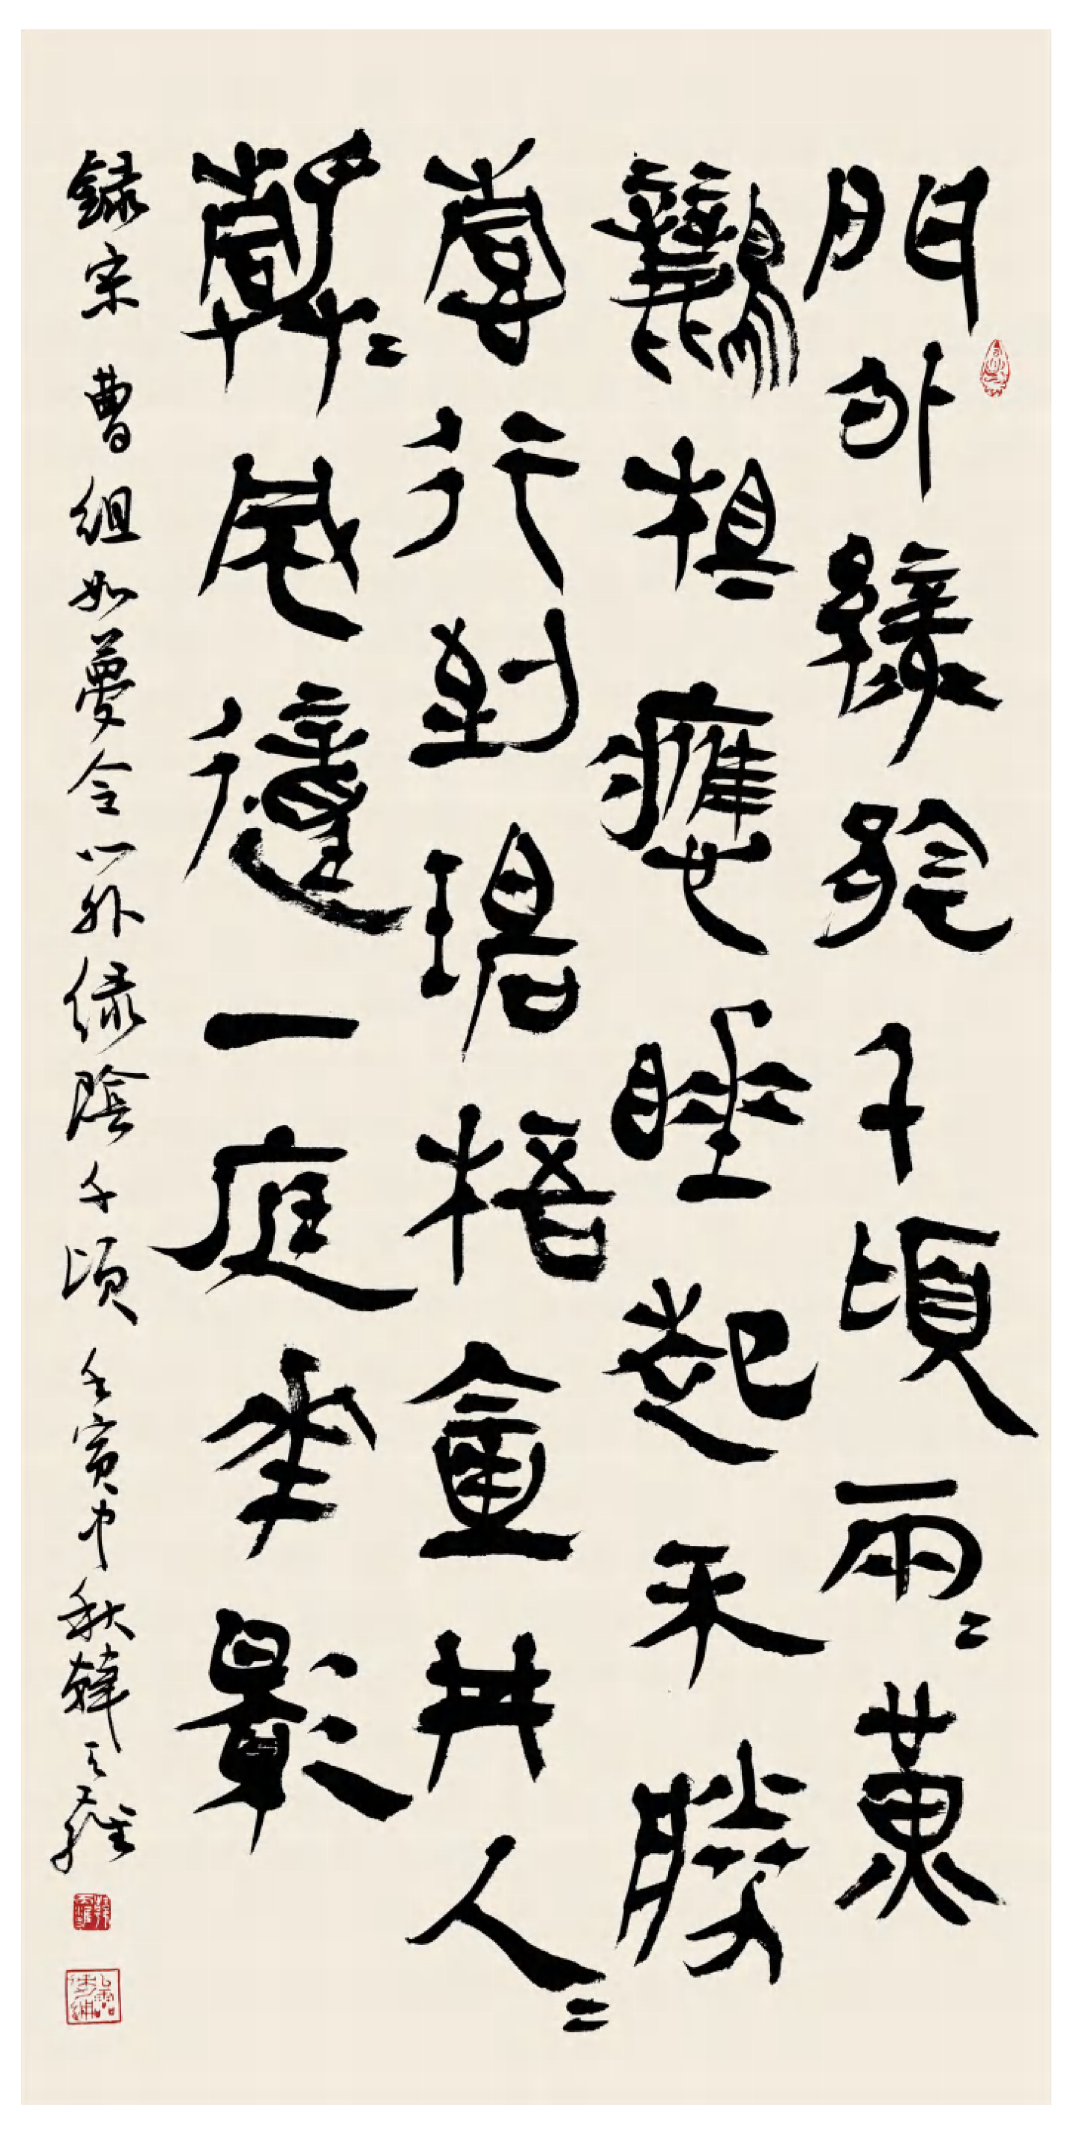 門外綠陰千頃兩〻黃
鸝相應睡起不勝
情行到碧梧金井人〻
靜〻風動一庭花影
錄宋 曹組如夢令門外綠陰千頃 壬寅中秋韓天雍